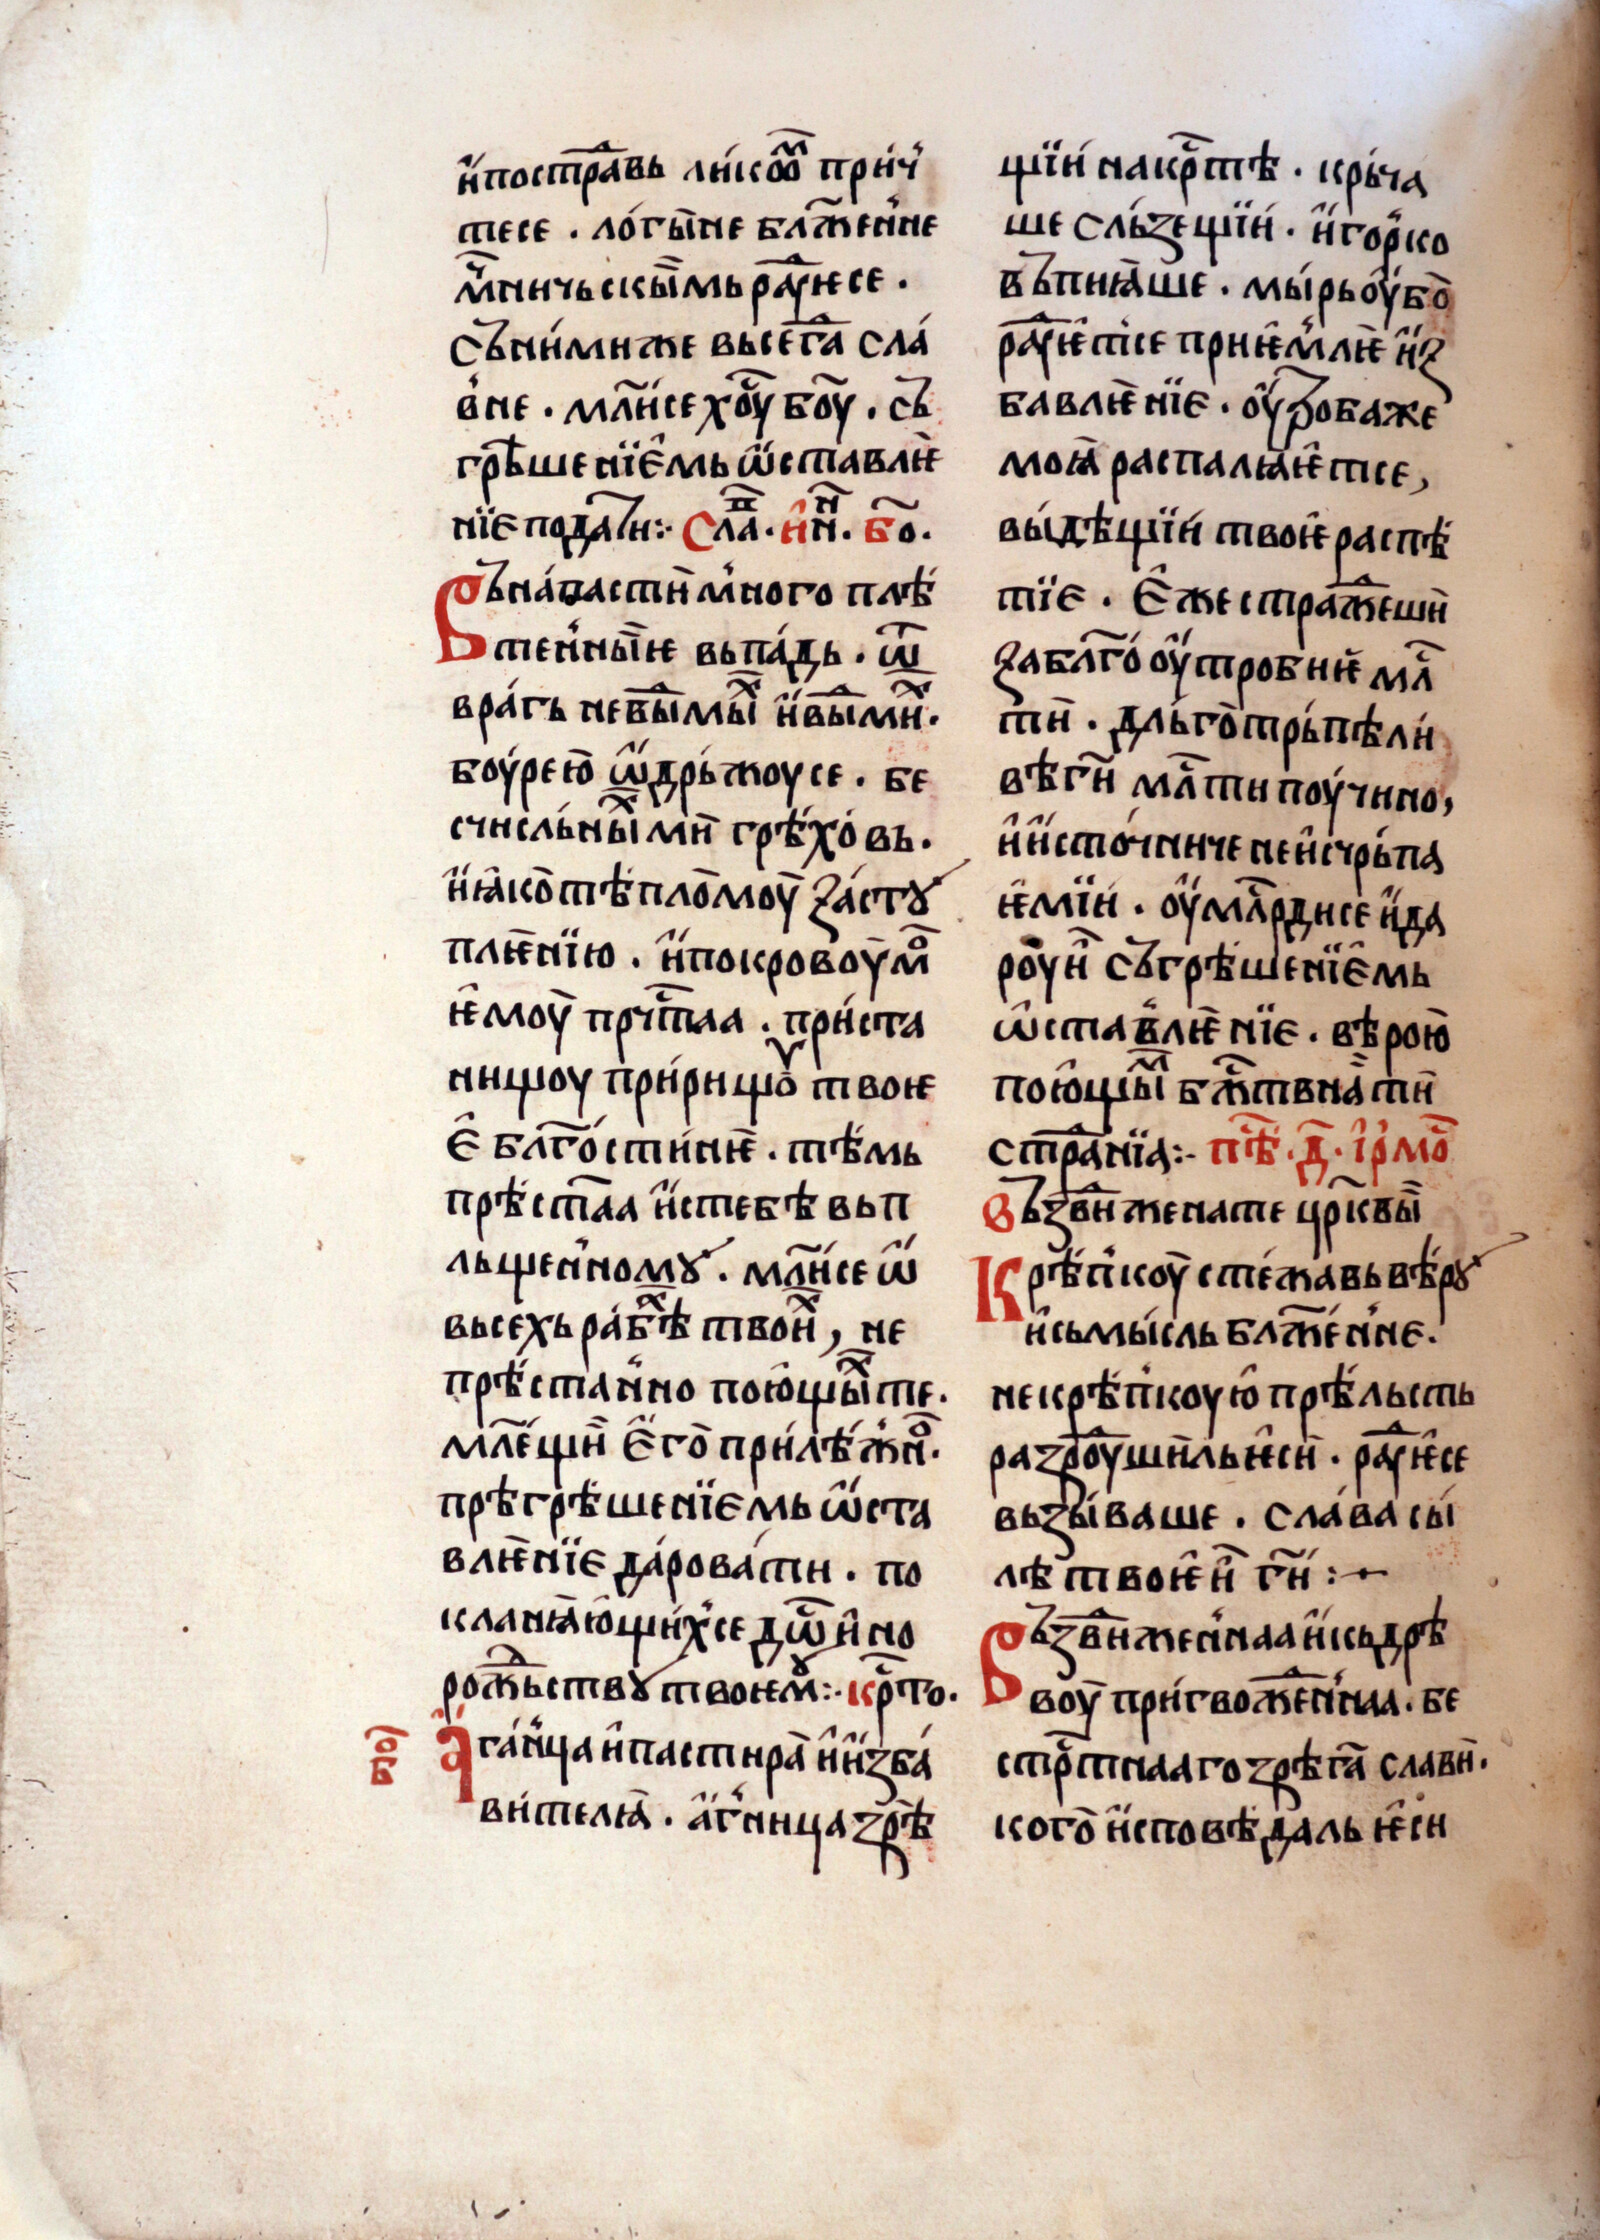 и҆пострⷣавь ликѡⷨ при́ч
тесе . ло́гы́не блⷤен̾не
мⷱничьскы́мь рⷣауисе .
съними́же высегⷣа сла́
в̾не . мл҃исе хⷭ҇оу бо҃у . съ
грѣ́шенїе҆мь ѡ҆ставлѥ
нїе подати :· Слаⷡ . и҆ нⷩ . б҃о .
Въна́пасти мно́го плѣ
тен̾ныѥ вьпа́дь . ѿ
вра́гь невⷣимыⷯ и҆ вⷣимиⷯ .
боу́рею ѡ҆дрьжоусе . бе
счисльныⷯими грѣ́хо́вь .
и҆ꙗ҆ко тѣпло́моу за́стꙋ
плѥнїю . и҆покровоу моⷪ
ѥ҆моу прⷭ҇чтаа . при́ста
нищоу при́рищоⷯ твоѥ
е҆ блг҃о́сти́нѥ . тѣ́мь
прѣ́ст҃аа и҆стебѣ вьп
льщен̾номꙋ . мл҃исе ѡ҆
высехь ра́бⷯѣ твоиⷯ , не
прѣ́стан̾но пою҆щыⷯте .
мл҃е́щи е҆го при́лѣ́жноⷪ .
прѣгрѣ́шенїемь ѡ҆ста
влѥнїе да́рова́ти . по
кланꙗ́ю҆щи́хсе дⷭ҇ѡи҆но
рожⷣьствꙋ твоѥмꙋ :· крⷭ҇то .
А҆га́н̾ца и҆пастнра и҆ и҆зба́
ви́телꙗ . а҆г̾ница зрѣ
бо҃
щїи́ накрⷭ҇тѣ . кры́ча
ше сльзещїи . и҆го́р̾ко
въпнꙗше . мы́рь оу҆бо
рⷣауѥ҆тсе приѥ҆млѥ и҆з
бавлѥнїе . оу҆тробаже
моꙗ распалꙗѥ҆тсе ,
вы́дѣщїи твоѥ распѣ
тїе . Е҆же страⷣжеши
заблг҃о оу҆тробнѥ млⷭ҇
ти . дльготрьпѣли
вѣ гн҃ млⷭ҇ти поу́чи́но ,
и҆ и҆сто́чниче неи҆счрьпа
ѥ҆мїи . оу҆млⷭ҇рдисе и҆да
роуи҆ съгрѣ́шенїе҆мь
ѡ҆став̾лѥнїе . вѣрою
пою҆щыⷨ бжⷭ҇твнаⷭ҇ти
страⷣнїа :· пѣⷭ҇ . д҃ . і҆рмоⷭ҇
Възвⷣиженате цр҃квы
Крѣ́п̾коу сте́жавь вѣ́рꙋ
и҆сьмы́сль блⷤен̾не .
некрѣ́п̾коую҆ прѣ́льсть
разⷣроушиль ѥ҆си . рⷣауѥ҆се
вьзы́ваше . слава сы́
лѣ твоѥ҆и҆ гн҃и :·
Възвⷣижен̾наа и҆сьдрѣ
воу при́гвоⷣжен̾наа . бе
стрⷭ҇тнааго зрѣ́га слави .
кого и҆сповѣдаль ѥ҆си